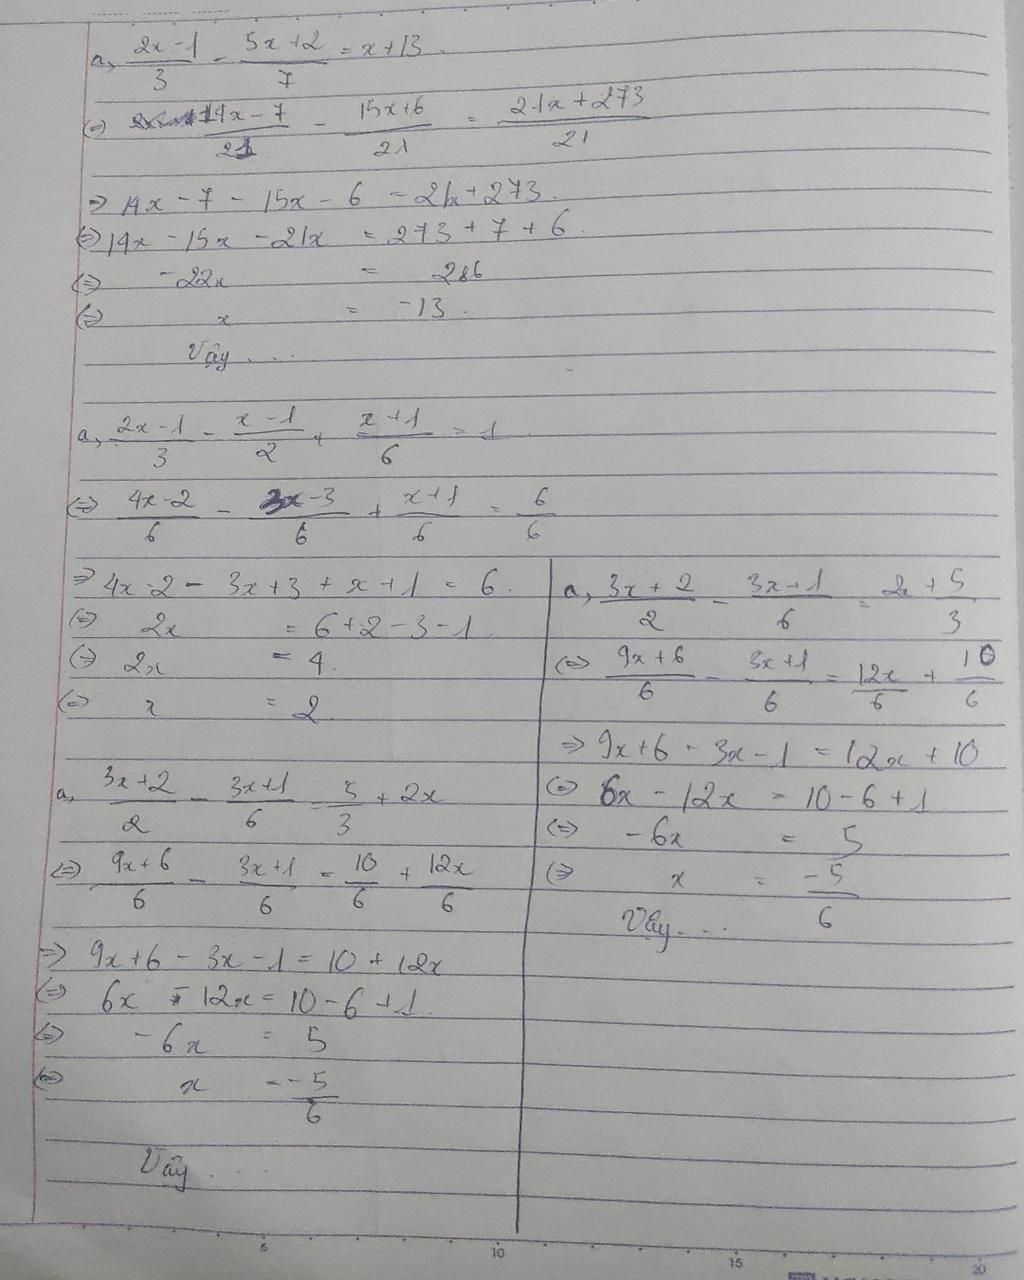 a, (2x-1)/3 - (5x+2)/7 = x+13.
(=) (14x-7)/21 - (15x+6)/21 = (21x+273)/21
=> 14x - 7 - 15x - 6 = 21x + 273.
(=) 14x - 15x - 21x = 273 + 7 + 6.
(=) -22x = 286
(=) x = -13.
Vậy ....
a, (2x-1)/3 - (x-1)/2 + (x+1)/6 = 1
(=) (4x-2)/6 - (3x-3)/6 + (x+1)/6 = 6/6
=> 4x-2 - 3x+3 + x+1 = 6.
(=) 2x = 6+2-3-1
(=) 2x = 4.
(=) x = 2
a, (3x+2)/2 - (3x+1)/6 = 5/3 + 2x
(=) (9x+6)/6 - (3x+1)/6 = 10/6 + 12x/6
=> 9x+6 - 3x-1 = 10 + 12x
(=) 6x - 12x = 10 - 6 + 1.
(=) -6x = 5
(=) x = -5/6
Vậy ....
a, (3x+2)/2 - (3x+1)/6 = 2x + 5/3
(=) (9x+6)/6 - (3x+1)/6 = 12x/6 + 10/6
=> 9x+6 - 3x-1 = 12x + 10
(=) 6x - 12x = 10-6+1
(=) -6x = 5
(=) x = -5/6
Vậy....
5 10 15 20